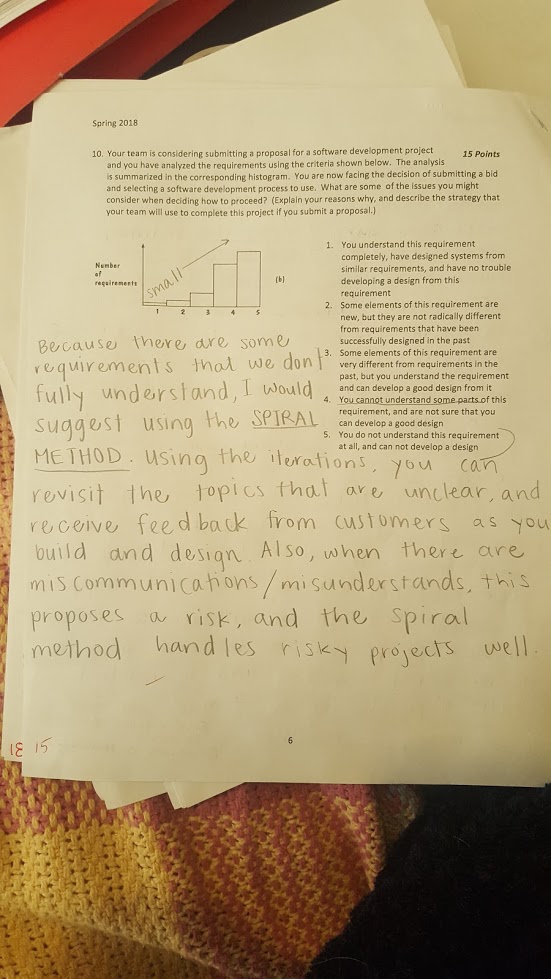 Spring 2018
10. Your team is considering submitting a proposal for a software development project 15 Points
and you have analyzed the requirements using the criteria shown below. The analysis
is summarized in the corresponding histogram. You are now facing the decision of submitting a bid
and selecting a software development process to use. What are some of the issues you might
consider when deciding how to proceed? (Explain your reasons why, and describe the strategy that
your team will use to complete this project if you submit a proposal.)
Number
of
requirements
small
(b)
1 2 3 4 5
1. You understand this requirement
completely, have designed systems from
similar requirements, and have no trouble
developing a design from this
requirement
2. Some elements of this requirement are
new, but they are not radically different
from requirements that have been
successfully designed in the past
3. Some elements of this requirement are
very different from requirements in the
past, but you understand the requirement
and can develop a good design from it
4. You cannot understand some parts of this
requirement, and are not sure that you
can develop a good design
5. You do not understand this requirement
at all, and can not develop a design
Because there are some
requirements that we don't
fully understand, I would
suggest using the SPIRAL
METHOD. Using the iterations, you can
revisit the topics that are unclear, and
receive feedback from customers as you
build and design. Also, when there are
miscommunications/misunderstands, this
proposes a risk, and the spiral
method handles risky projects well.
6
18 15